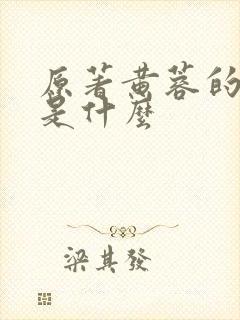 原著黄蓉的
是什麼
梁其發